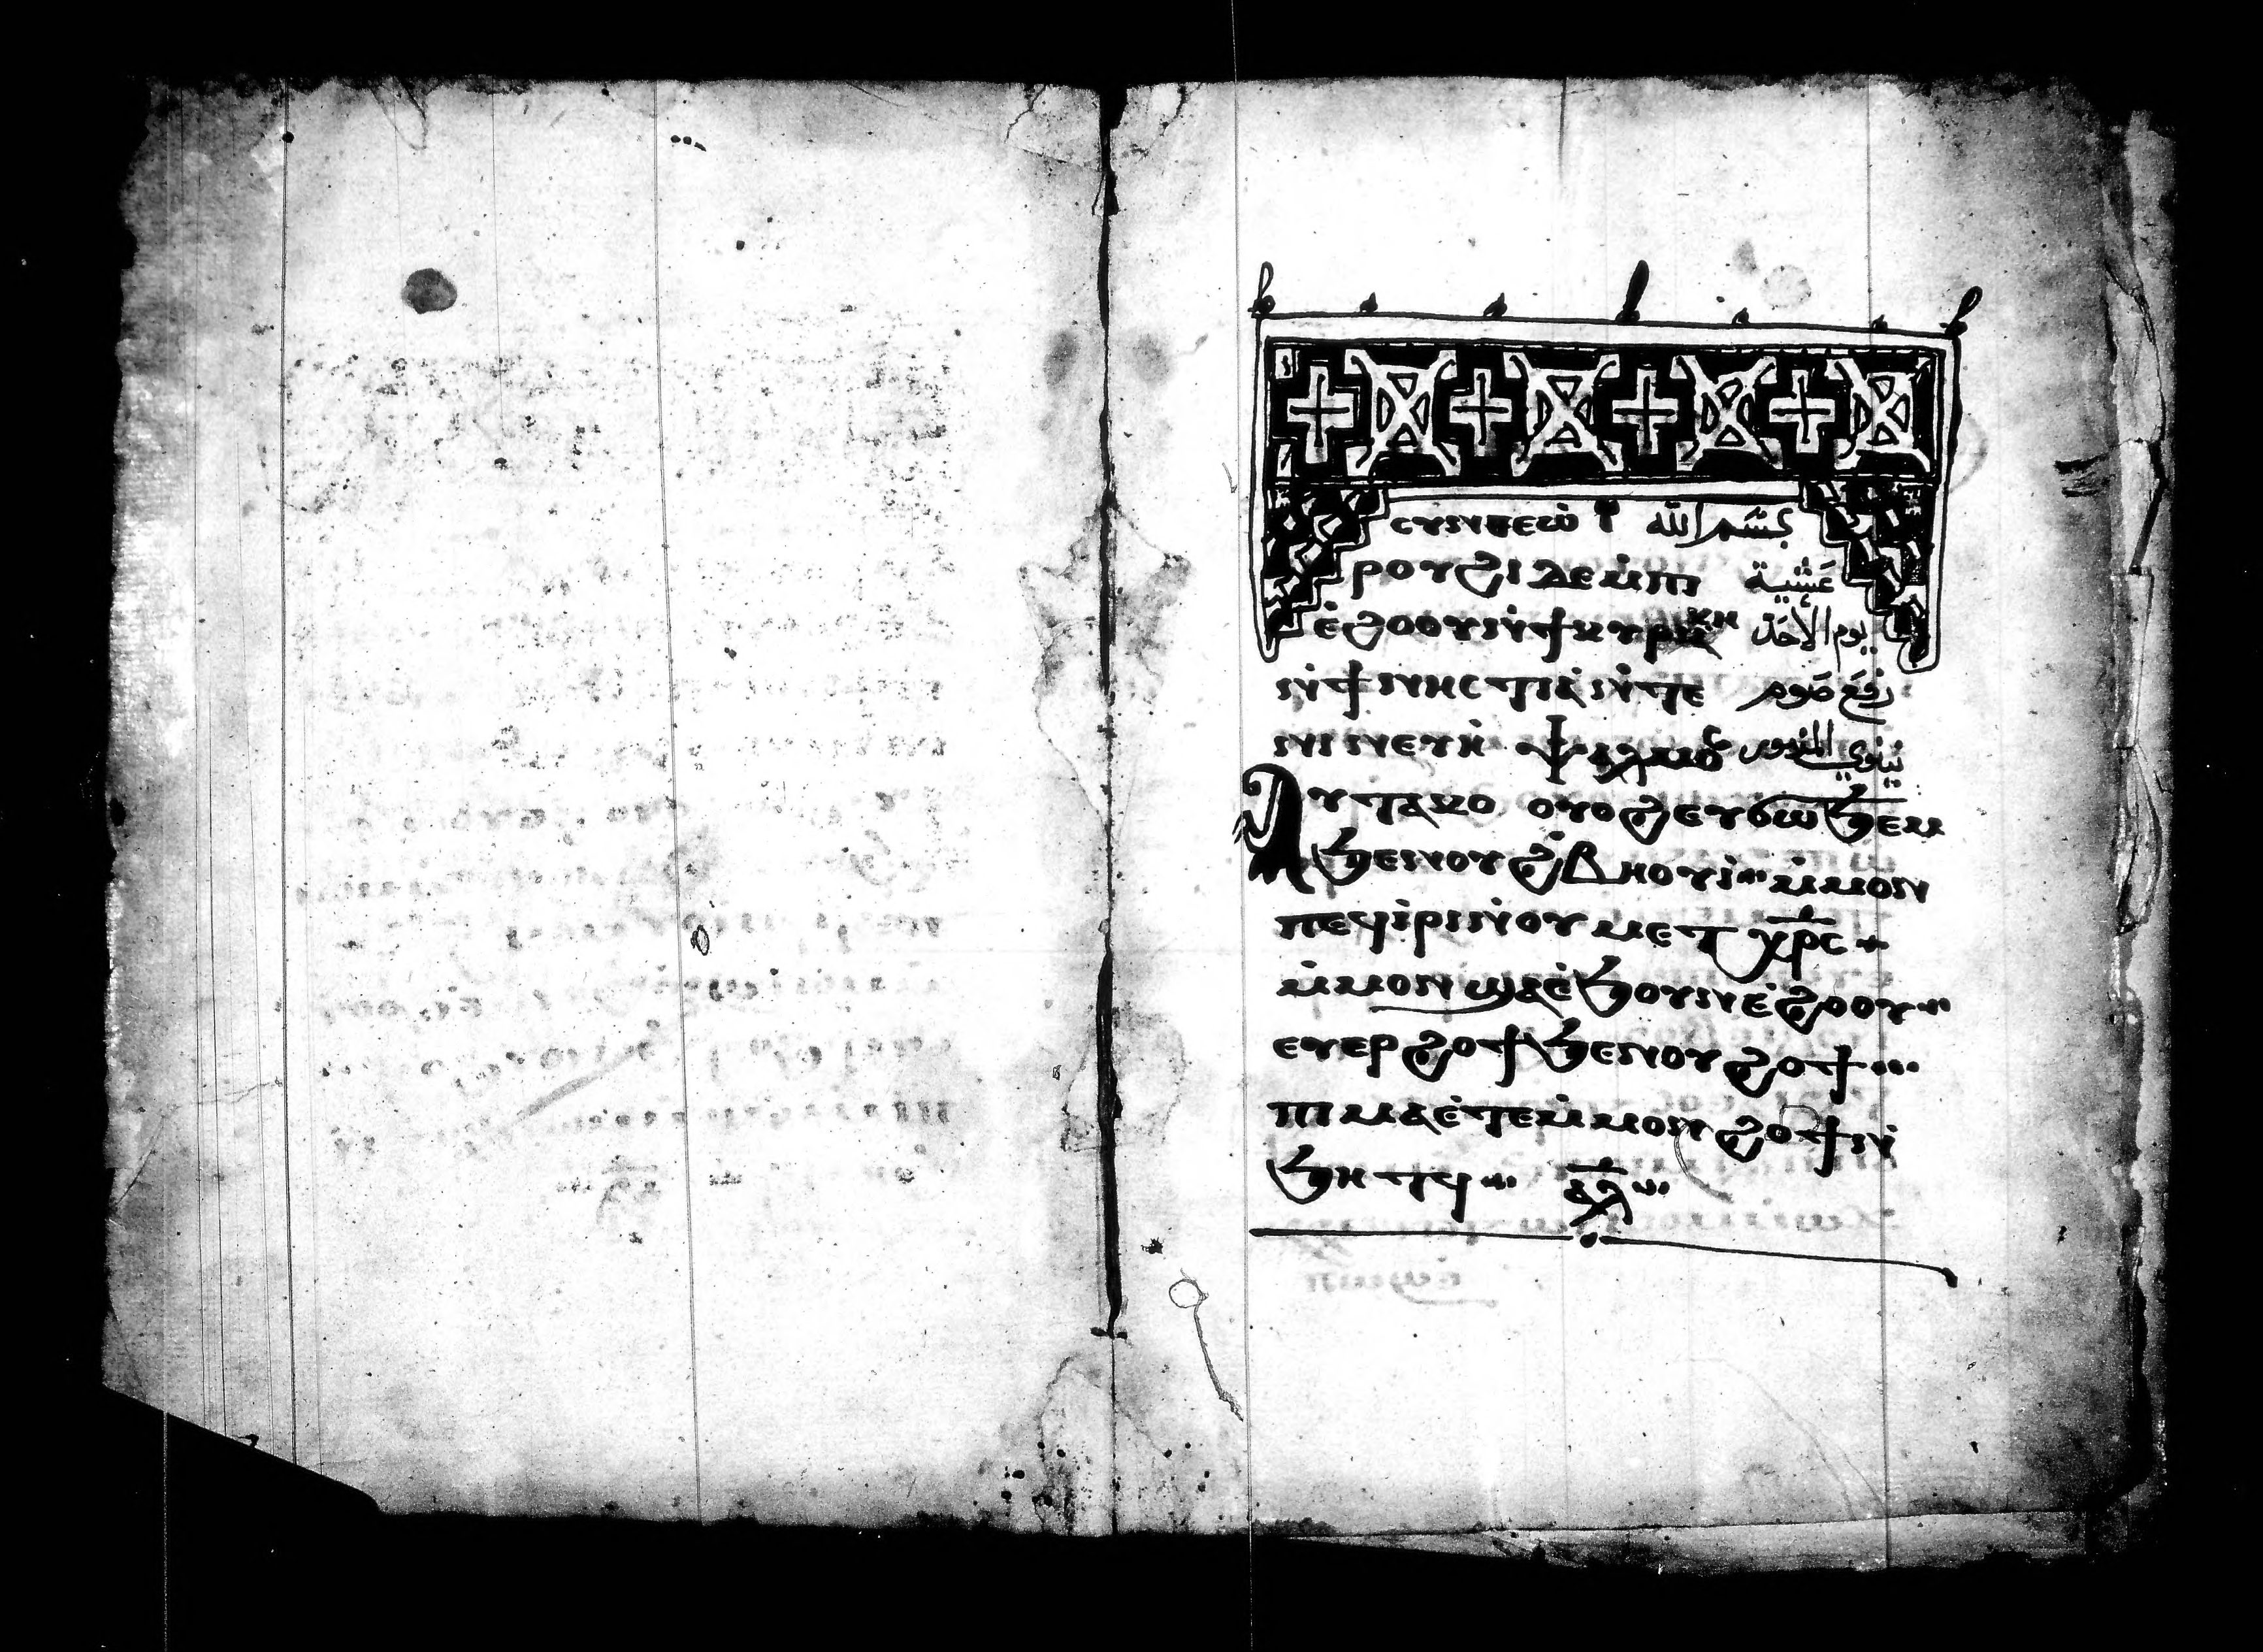 ⲥⲩⲛⲑⲉⲱ̀ بسم الله
ⲣⲟⲩϩⲓ ⲇⲉ ⲙ̀ⲡⲓ عشية
ⲉ̀ϩⲟⲟⲩ ⲛ̀ϯⲕⲩⲣⲓⲁⲕⲏ يوم الأحد
ⲛ̀ϯⲛⲏⲥⲧⲓⲁ̀ ⲛ̀ⲧⲉ رفع صوم
ⲛⲓⲛⲉⲩⲏ̀ ⲯⲁⲗⲙⲟⲥ نينوى المزمور
Ⲁⲩⲧⲁⲕⲟ ⲟⲩⲟϩ ⲉⲩⲥⲱϧⲉⲙ
ϧⲉⲛⲟⲩϩ̀ⲃⲏⲟⲩⲓ̀ ⲙ̀ⲙⲟⲛ
ⲡⲉϥⲓ̀ⲣⲓ ⲛ̀ⲟⲩⲙⲉⲧⲭ̅ⲣ̅ⲥ
ⲙ̀ⲙⲟⲛ ϣⲁⲉ̀ϧⲟⲩⲛ ⲉ̀ϩⲟⲟⲩ
ⲉⲩⲉⲣϩⲟϯ ϧⲉⲛⲟⲩϩⲟϯ
ⲡⲓⲙⲁ ⲉ̀ⲧⲉⲙ̀ⲙⲟⲛ ϩⲟϯ ⲛ̀
ϧⲏⲧϥ ⲁ̅ⲗ̅